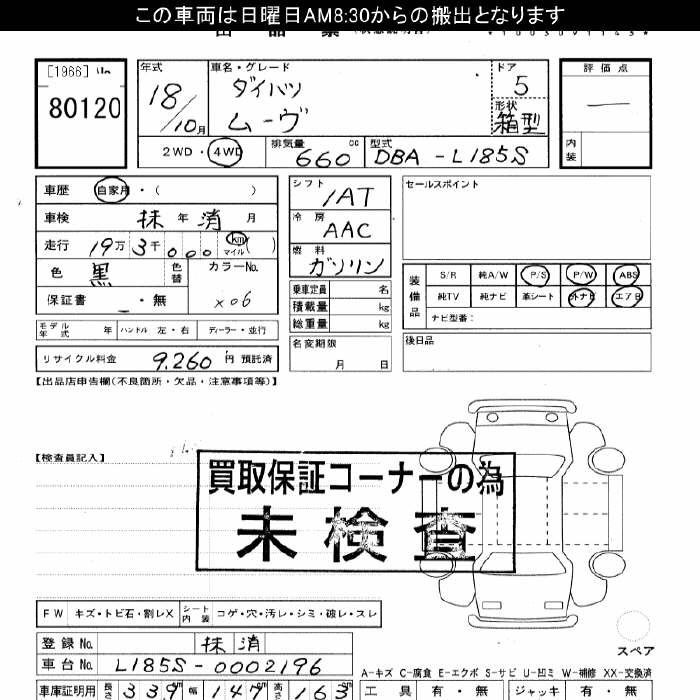 この車両は日曜日AM8:30からの搬出となります
[1966]
80120
年式 車名・グレード ドア 評価点
18/10月 ダイハツ 5
ムーヴ 形状 箱型 ー
2WD・4WD 排気量 660 cc 型式 DBA-L185S 内装
車歴 自家用・( )
車検 抹年消月
走行 19万3千000 km マイル( )
色 黒 色替 カラーNo. X06
保証書 ・無
シフト IAT
冷房 AAC
燃料 ガソリン
乗車定員 名
積載量 kg
総重量 kg
名変期限
月 日
セールスポイント
装備品 S/R 純A/W P/S P/W ABS
純TV 純ナビ 革シート 外ナビ エアB
ナビ型番:
後日品
モデル年式 年 ハンドル 左・右 ディーラー・並行
リサイクル料金 9,260円 預託済
【出品店申告欄(不良箇所・欠品・注意事項等)】
【検査員記入】
買取保証コーナーの為
未検査
FW キズ・トビ石・割レX シート内装 コゲ・穴・汚レ・シミ・破レ・スレ
登録No. 抹消
車台No. L185S-0002196
スペア
A-キズ C-腐食 E-エクボ S-サビ U-凹ミ W-補修 XX-交換済
車庫証明用 長さ 339 幅 147 高さ 163
工具 有・無 ジャッキ 有・無